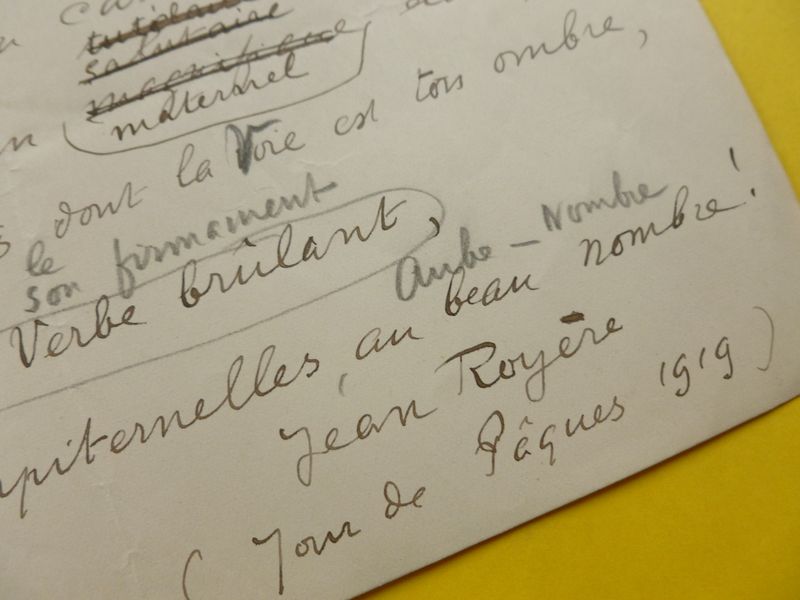 salutaire
magnifique
maternel
dont la Voie est tous ombre,
le
son firmament
Verbe brûlant,
Aube - Nombre
piternelles, au beau nombre!
Jean Royère
(Jour de Pâques 1919)